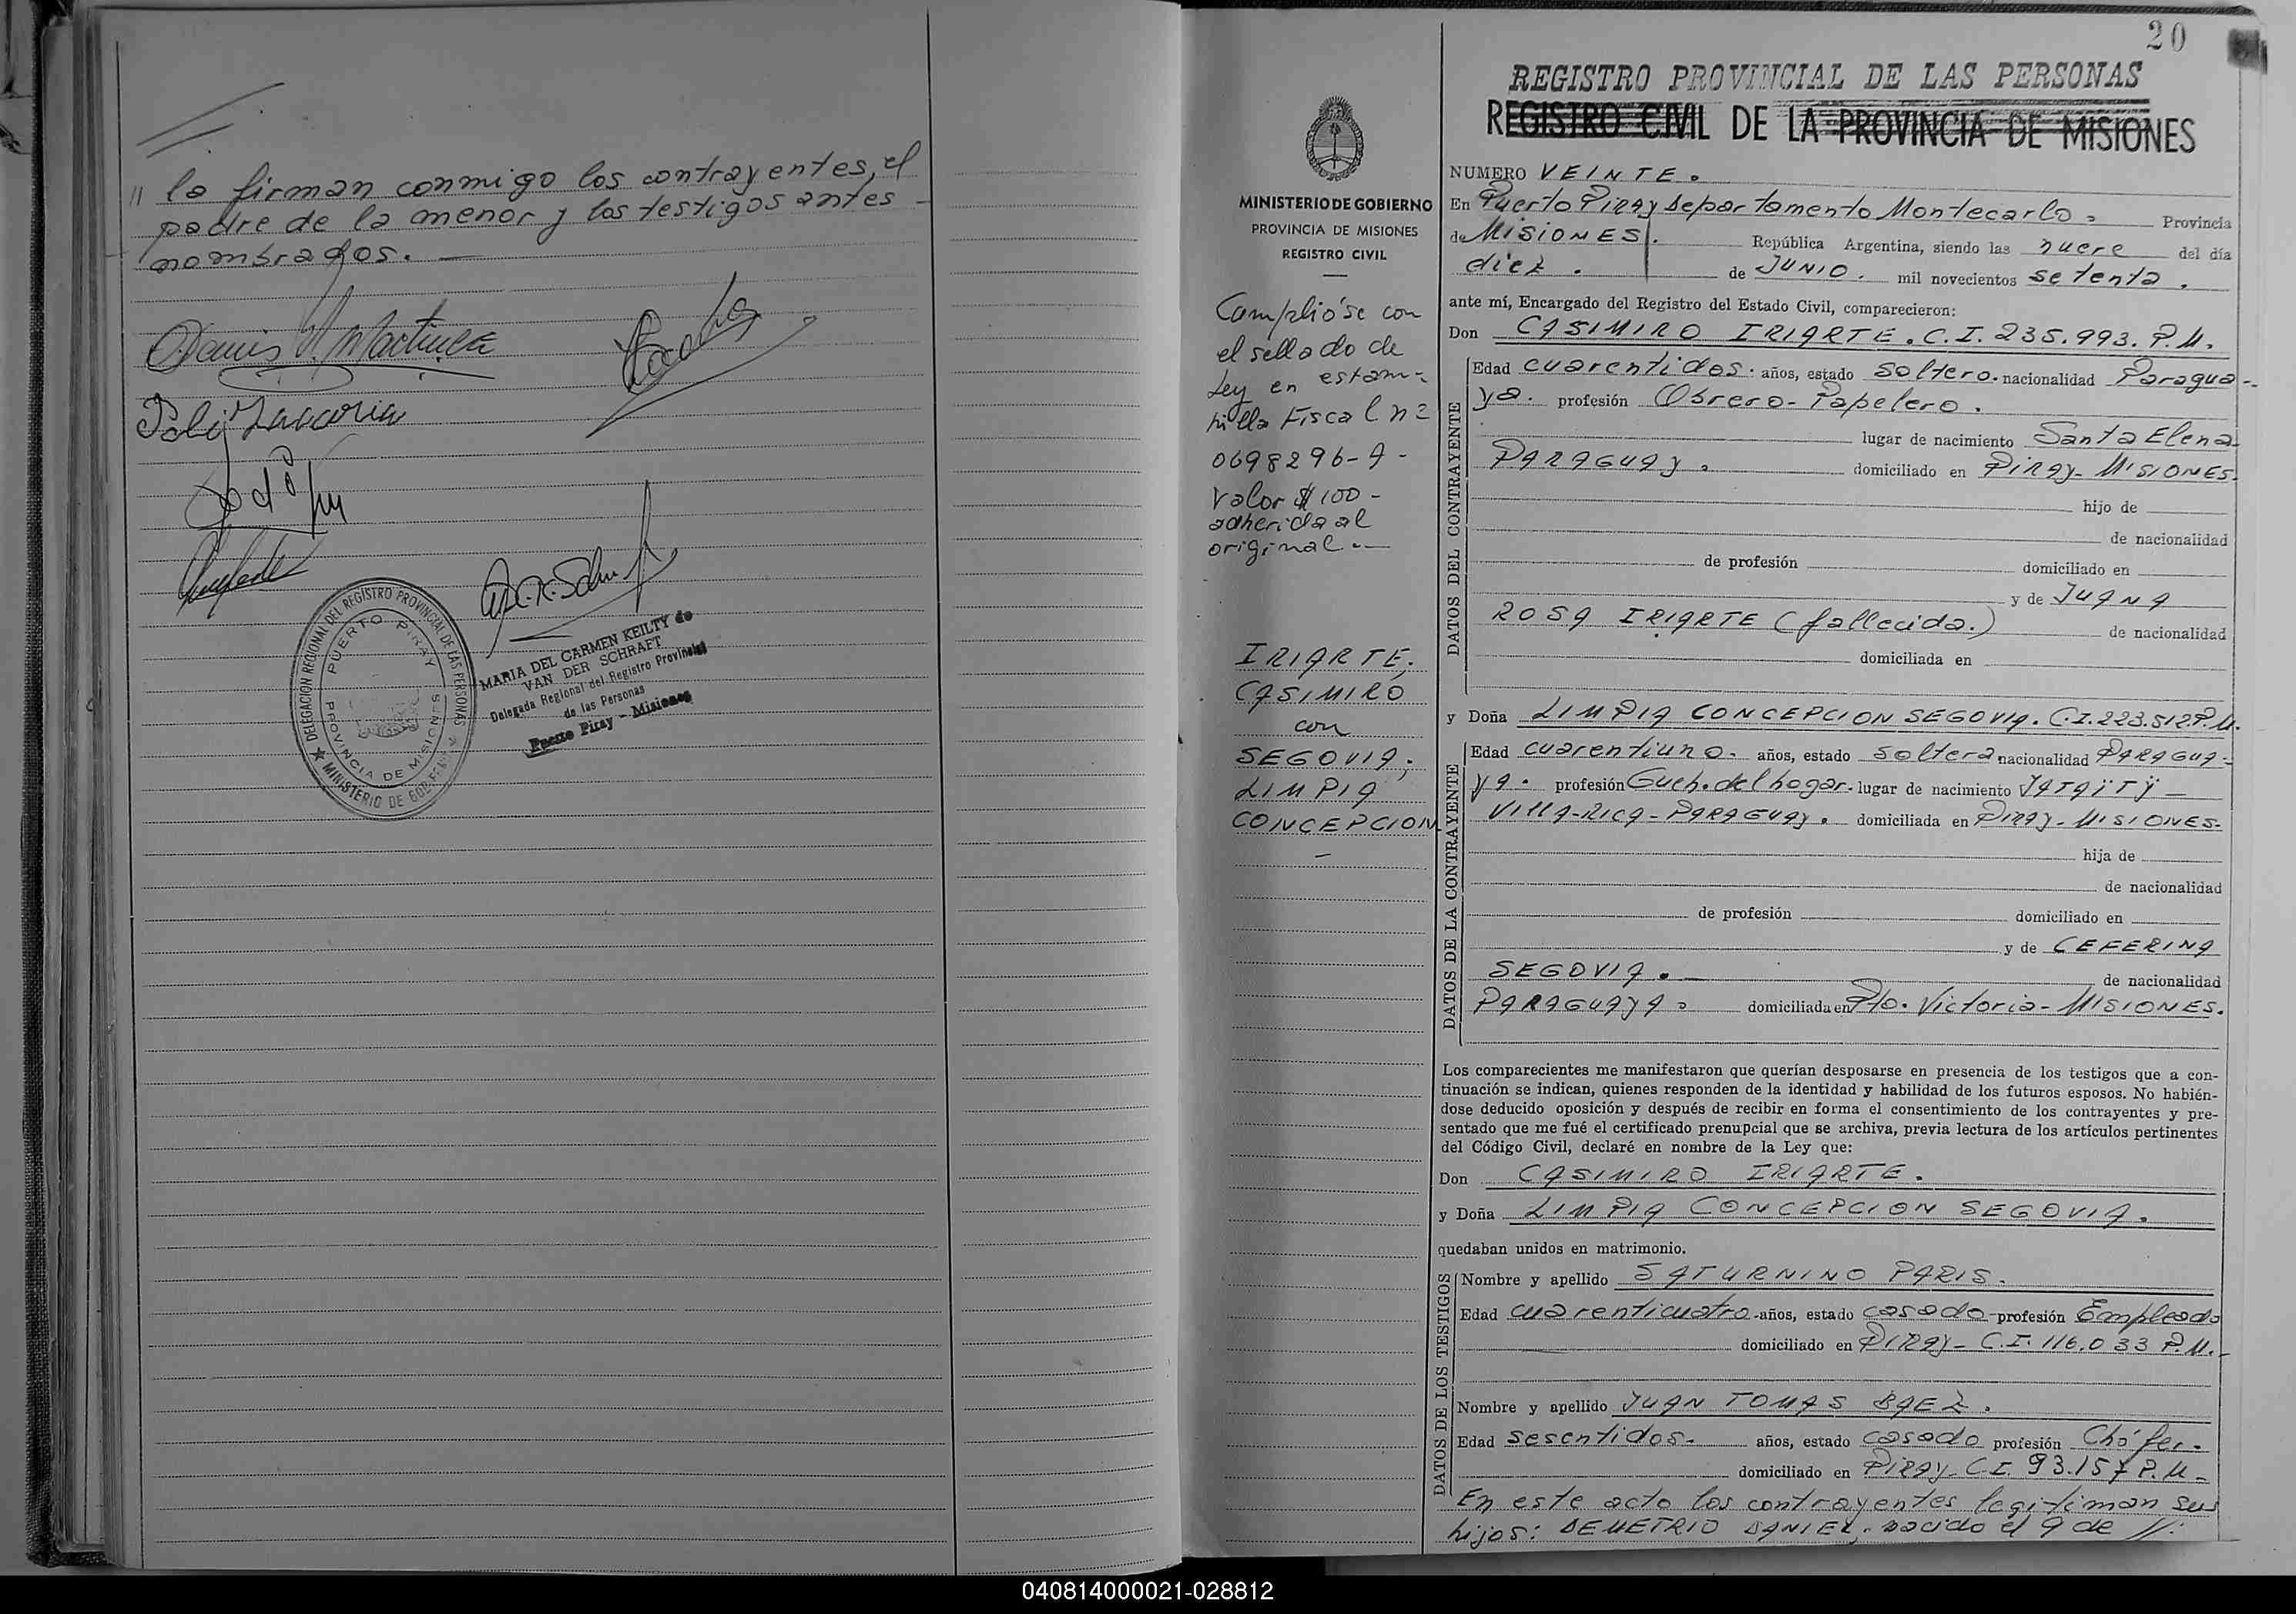 " la firman conmigo los contrayentes, el
padre de la menor y los testigos antes
nombrados. —
DELEGACION REGIONAL DEL REGISTRO PROVINCIAL DE LAS PERSONAS
PUERTO PIRAY
PROVINCIA DE MISIONES
MINISTERIO DE GOBIERNO
MARIA DEL CARMEN KEILTY de
VAN DER SCHRAFT
Delegada Regional del Registro Provincial
de las Personas
Puerto Piray - Misiones
20
REGISTRO PROVINCIAL DE LAS PERSONAS
REGISTRO CIVIL DE LA PROVINCIA DE MISIONES
MINISTERIO DE GOBIERNO
PROVINCIA DE MISIONES
REGISTRO CIVIL
Cumplióse con
el sellado de
Ley en estam-
pilla Fiscal nº
0698296-A-
Valor $100-
adherida al
original.—
IRIARTE,
CASIMIRO
con
SEGOVIA,
LIMPIA
CONCEPCION
—
NUMERO VEINTE.
En Puerto Piray Departamento Montecarlo. Provincia
de MISIONES. República Argentina, siendo las nueve del día
diez. de JUNIO. mil novecientos setenta.
ante mí, Encargado del Registro del Estado Civil, comparecieron:
Don CASIMIRO IRIARTE. C.I. 235.993. P.M.
DATOS DEL CONTRAYENTE
Edad cuarentidos. años, estado soltero. nacionalidad Paragua-
ya. profesión Obrero-Papelero.
lugar de nacimiento Santa Elena-
PARAGUAY. domiciliado en PIRAY-MISIONES.
hijo de
de nacionalidad
de profesión domiciliado en
y de JUANA
ROSA IRIARTE (fallecida.) de nacionalidad
domiciliada en
y Doña LIMPIA CONCEPCION SEGOVIA. C.I. 223.512 P.M.
DATOS DE LA CONTRAYENTE
Edad cuarentiuno. años, estado soltera nacionalidad PARAGUA-
YA. profesión Queh. del hogar. lugar de nacimiento YATAÏTŸ-
VILLA-RICA-PARAGUAY. domiciliada en PIRAY-MISIONES.
hija de
de nacionalidad
de profesión domiciliado en
y de CEFERINA
SEGOVIA. de nacionalidad
PARAGUAYA. domiciliada en Pto. Victoria-MISIONES.
Los comparecientes me manifestaron que querían desposarse en presencia de los testigos que a con-
tinuación se indican, quienes responden de la identidad y habilidad de los futuros esposos. No habién-
dose deducido oposición y después de recibir en forma el consentimiento de los contrayentes y pre-
sentado que me fué el certificado prenupcial que se archiva, previa lectura de los artículos pertinentes
del Código Civil, declaré en nombre de la Ley que:
Don CASIMIRO IRIARTE.
y Doña LIMPIA CONCEPCION SEGOVIA.
quedaban unidos en matrimonio.
DATOS DE LOS TESTIGOS
Nombre y apellido SATURNINO PARIS.
Edad cuarenticuatro. años, estado casado profesión Empleado
domiciliado en PIRAY- C.I. 116.033 P.M.-
Nombre y apellido JUAN TOMAS BAEZ.
Edad sesentidos. años, estado casado profesión Chófer.
domiciliado en PIRAY- C.I. 93.157 P.M-
En este acto los contrayentes legitiman sus
hijos: DEMETRIO DANIEL, nacido el 9 de //:
040814000021-028812